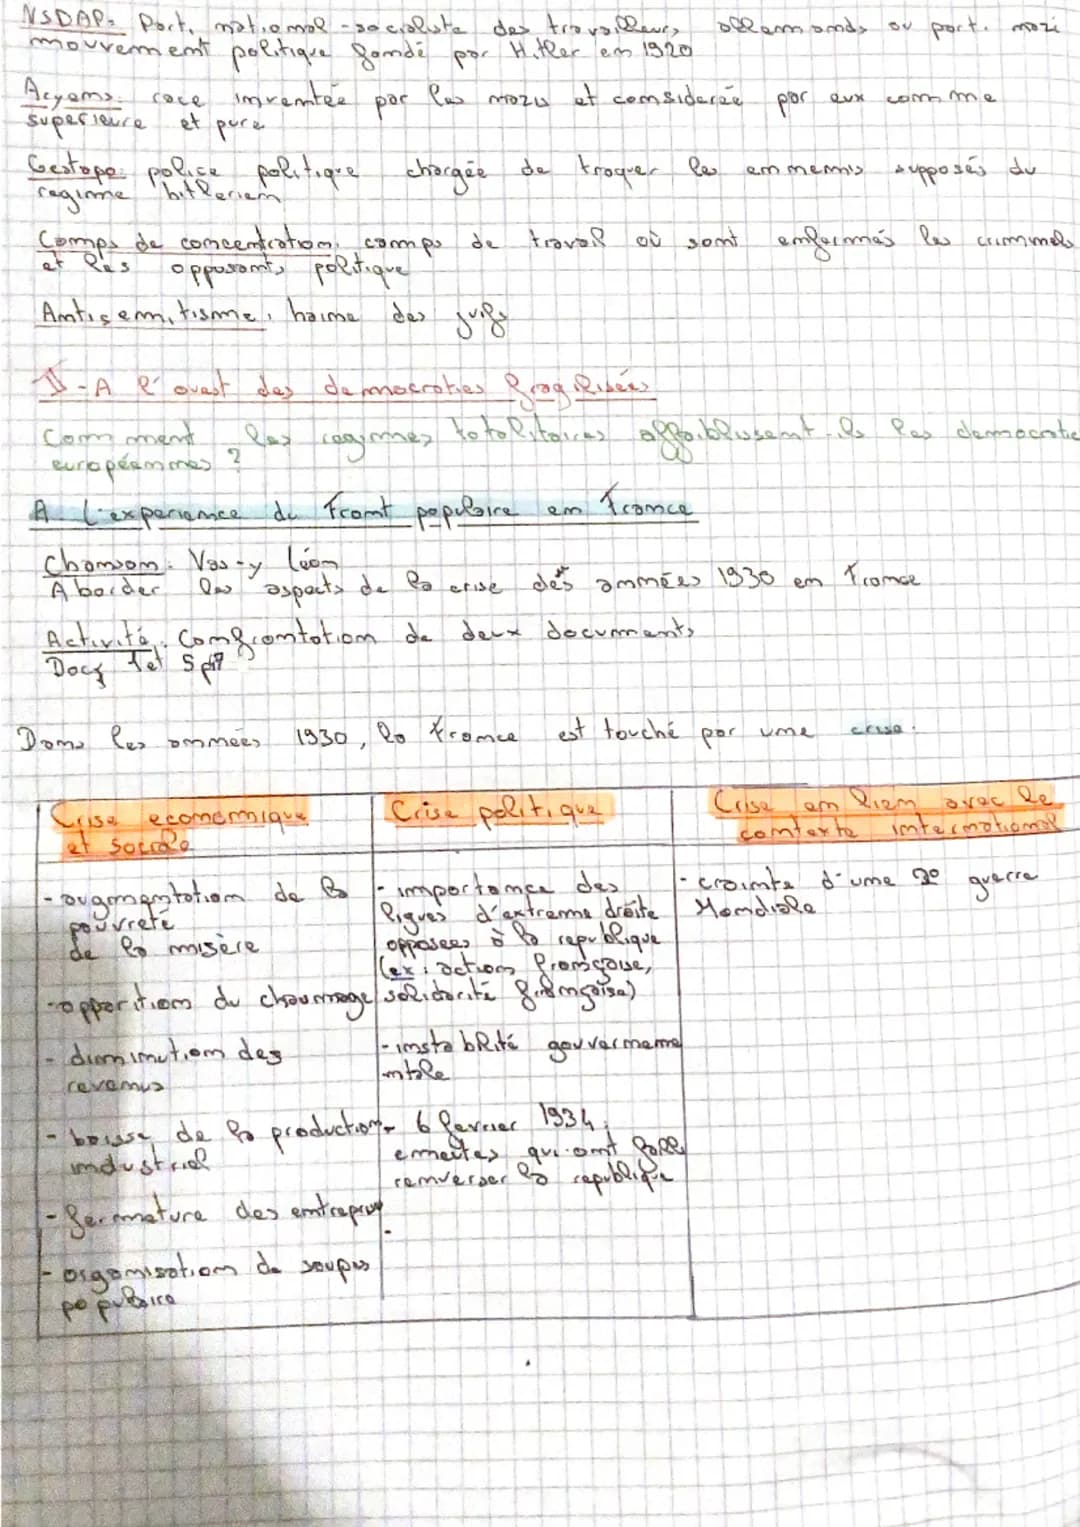 NSDAP: Parti national-socialiste des travailleurs allemands ou parti nazi
mouvement politique fondé par Hitler en 1920
Aryens: race inventée par les nazis et considerée par eux comme
superieure et pure
Gestapo: police politique chargée de traquer les ennemis supposés du
regime hitlerien
Camps de concentration: camps de travail où sont enfermés les criminels
et les opposants politique
Antisemitisme: haine des juifs
II - A l'ouest des democraties fragilisées
Comment les regimes totalitaires affaiblissent-ils les democratie
européennes ?
A. L'experience du Front populaire en France
Chanson: Vas-y Léon
Aborder les aspects de la crise des années 1930 en France
Activité: Confrontation de deux documents
Docs 1 et 5 p17
Dans les années 1930, la France est touché par une crise.
Crise economique
et sociale
- augmentation de la
pauvreté
de la misère
- apparition du chaumage
- diminution des
revenus
- baisse de la production
industriel
- fermeture des entreprise
- organisation de soupes
populaire
Crise politique
- importance des
ligues d'extreme droite
opposees à la republique
(ex: action française,
solidarité française)
- instabilité gouverneme
ntale
- 6 fevrier 1934:
emeutes qui ont failli
renverser la republique
Crise en lien avec le
contexte international
- crainte d'une 2e guerre
Mondiale